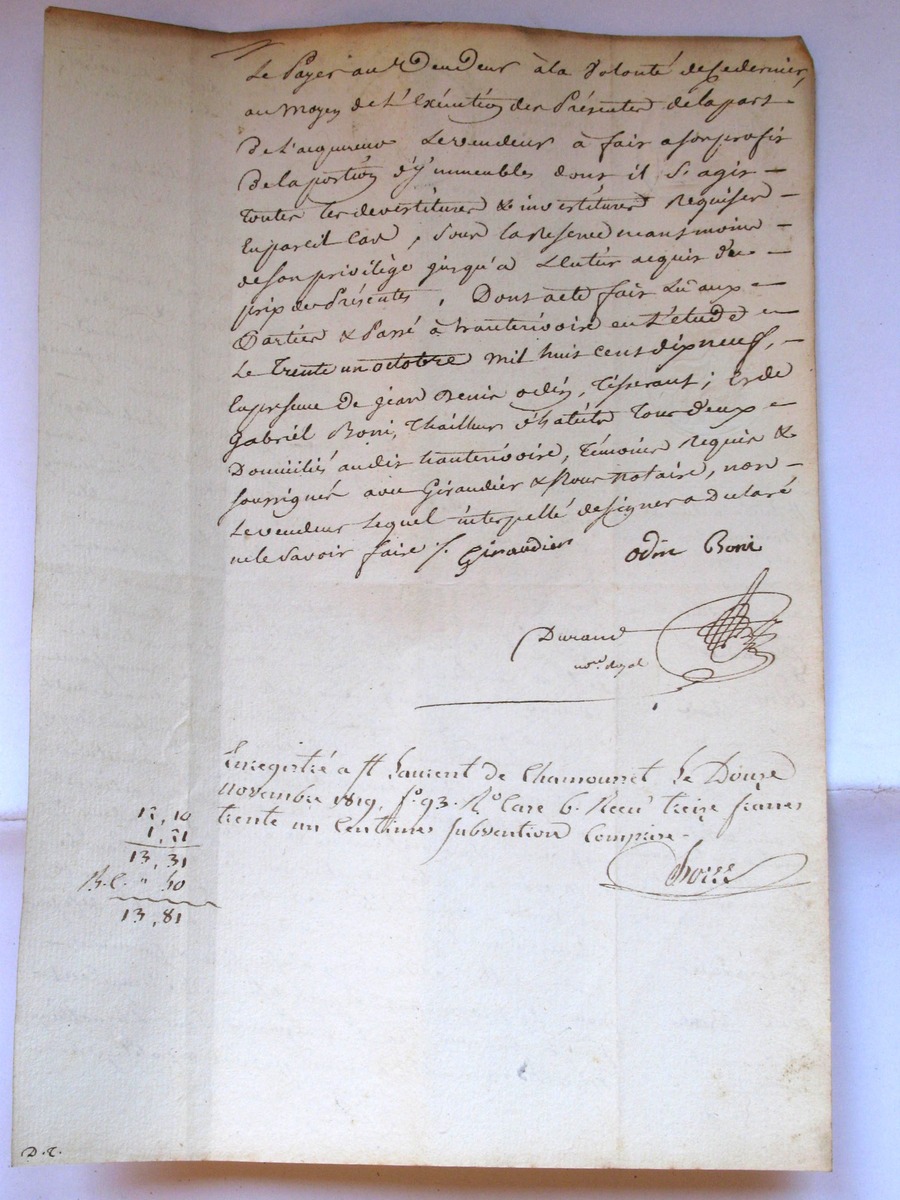 Le Payer au Vendeur à la Volonté de ce dernier,
au moyen de L'Exécution des Présentes de la part
De L'acquereur Le vendeur à fait a son profit
De la portion d'ÿ immeubles dont il S'agit
toutes les devestitures & investitures Requises
En pareil Cas, Sous la Reserve neansmoins
de son privilège jusqu'a L'entier acquit du
prix des Présentes. Dont acte fait Lu aux
Parties & Passé à hauterivoire en L'étude
Le Trente un octobre mil huit cent dix neuf,
En présence De jean Denis odin, Tisserant; Et de
Gabriël Boni, Thailleur d'habits Tous deux
Domiciliés audit hauterivoire, Témoins Requis &
soussignés avec Giraudier & Nous Notaire, non
Le vendeur Lequel interpellé de signer a Declaré
ne le savoir faire ./. Giraudier odin Boni
Durand
no.re Royal
Enregistré a St Laurent de Chamousset Le Douze
novembre 1819, fo. 93. Ro. Case 6. Recu treize francs
trente un Centimes subvention Comprise
12,10
1,21
13,31
" 50
13,81
D.T.